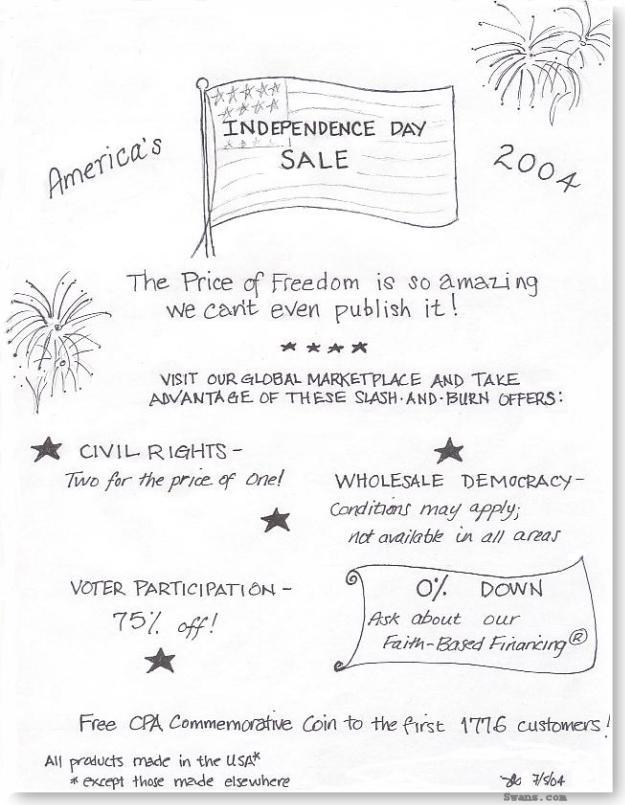 America's
INDEPENDENCE DAY
SALE
2004
The Price of Freedom is so amazing
we can't even publish it!
★ ★ ★ ★
VISIT OUR GLOBAL MARKETPLACE AND TAKE
ADVANTAGE OF THESE SLASH-AND-BURN OFFERS:
★ CIVIL RIGHTS -
Two for the price of one!
WHOLESALE DEMOCRACY -
Conditions may apply;
not available in all areas
VOTER PARTICIPATION -
75% off!
0% DOWN
Ask about our
Faith-Based Financing®
Free CPA Commemorative Coin to the first 1776 customers!
All products made in the USA*
* except those made elsewhere
7/5/04
Swans.com